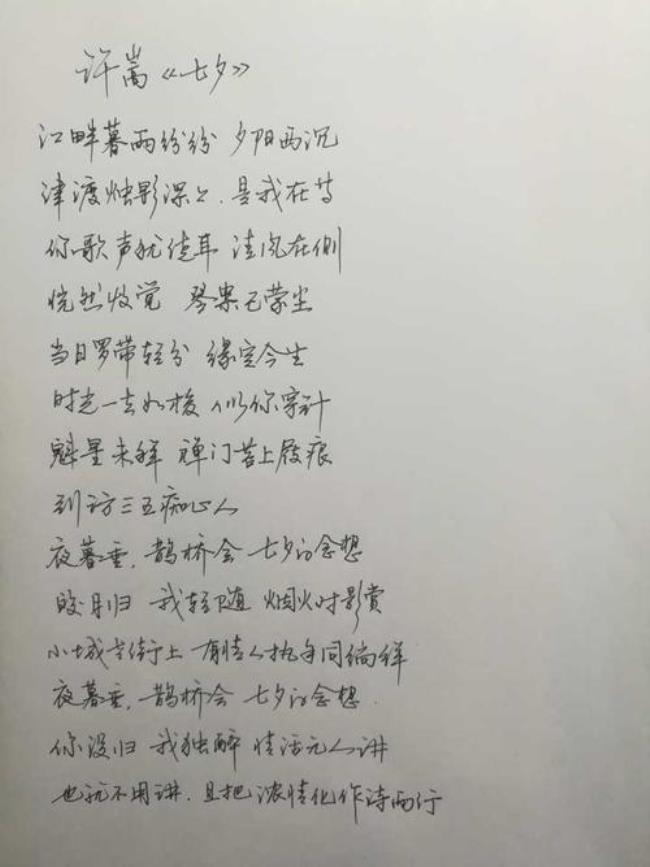 许嵩《七夕》
江畔暮雨纷纷 夕阳西沉
津渡烛影深深.是我在等
你歌声犹绕耳 清风在侧
恍然收觉 琴案已蒙尘
当日罗带轻分 缘定今生
时光一去如梭 似你穿针
魁星未释 禅门苔上屐痕
到访三五痴心人
夜幕垂.鹊桥会 七夕的念想
皎月归 我轻随 烟火时影赏
小城老街上 有情人执手同徜徉
夜幕垂.鹊桥会 七夕的念想.
你没归 我独醉 情话无人讲
也就不用讲.且把浓情化作诗两行